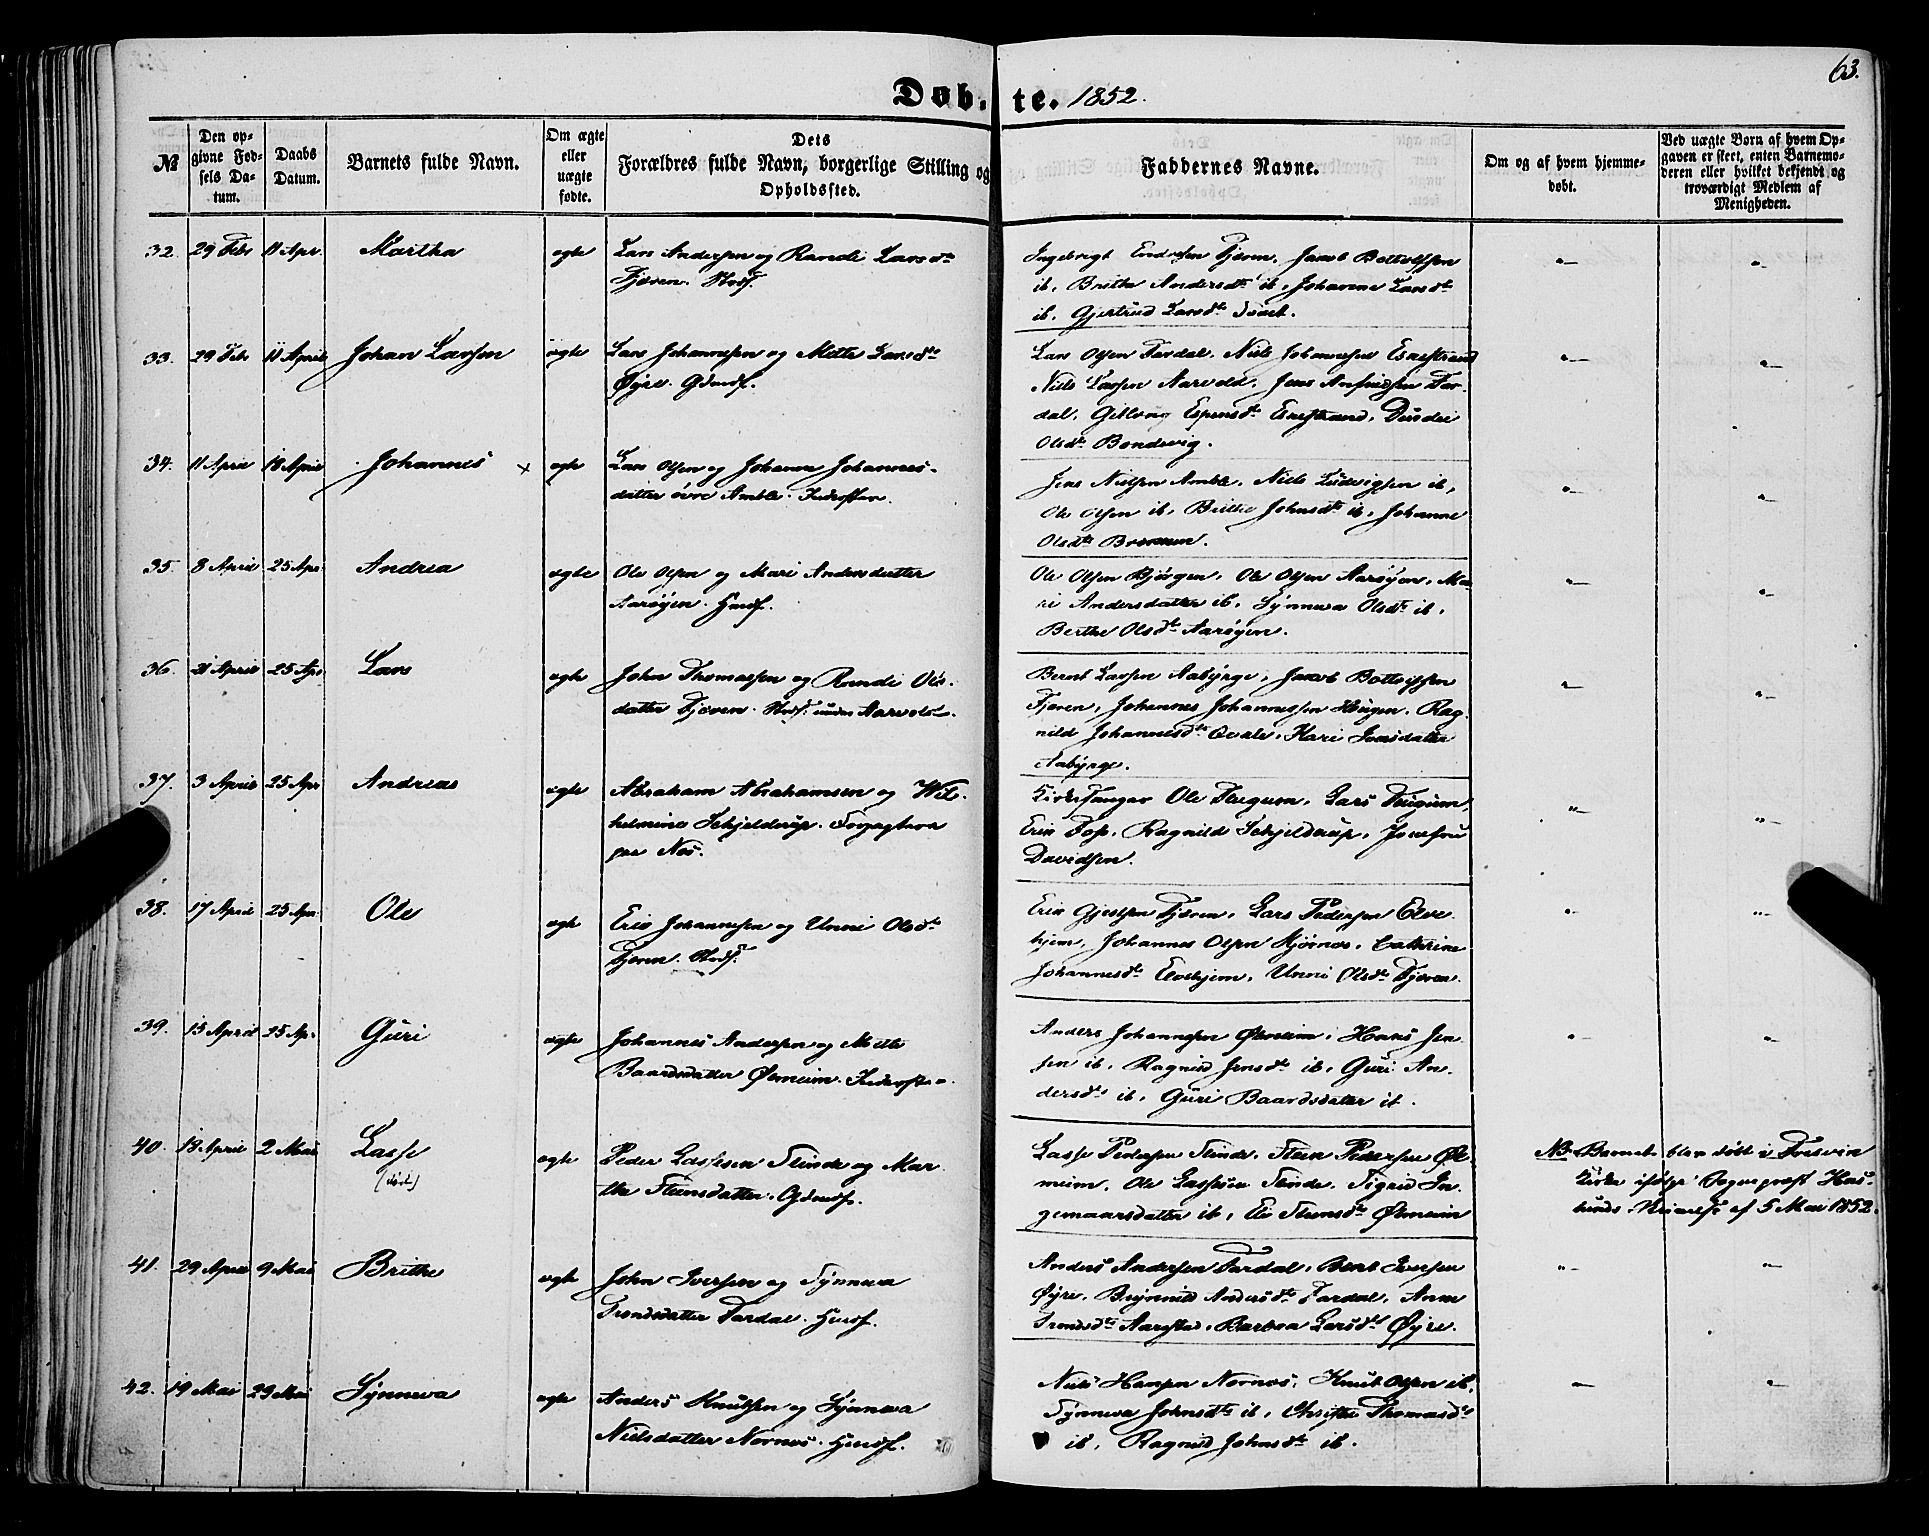 63.
Døb- te. 1852.
№
Den op-
givne Fød-
sels Da-
tum.
Daabs
Datum.
Barnets fulde Navn.
Om ægte
eller
uægte
fødte.
Dets
Forældres fulde Navn, borgerlige Stilling og
Opholdssted.
Faddernes Navne.
Om og af hvem hjemme-
døbt.
Ved uægte Børn af hvem Op-
gaven er skeet, enten Barnemo-
deren eller hvilket bekjendt og
troværdigt Medlem af
Menigheden.
32. 29 Febr 11 Apr. Martha ægte Lars Andersen og Randi Larsdtr
Fjæren. Hmd.
Ingebrigt Endresen Fjæren, Jacob Bottolfsen
ib, Brithe Andersdtr ib, Johanne Larsdtr
ib, Gjertrud Larsdtr
33. 29 Febr 11 April Johan Larsen ægte Lars Johannesen og Mette Larsdtr
Øyre. Gdmd.
Lars Olsen Fardal, Niels Johannesen Esnestrand
Niels Larsen Aarvold, Jens Ansteensen Far-
dal, Gitlaug Espensdtr Esnestrand,
Olsdtr Bondevig.
34. 11 April 18 April Johannes x ægte Lars Olsen og Johanne Johannes-
datter øvre Amble. Inderster.
Jens Nielsen Amble, Niels Ludvigsen ib,
Ole Olsen ib, Brithe Johnsdtr ib, Johanne
Olsdtr
35. 8 April 25 Apr Andrea ægte Ole Olsen og Mari Andersdatter
Aarøyen. Hmd.
Ole Olsen Bjørgen, Ole Olsen Aarøyen, Ma-
ri Andersdatter ib, Synneva Olsdtr ib,
Berthe Olsdtr Aarøyen.
36. 21 April 25 Apr Lars ægte John Thomassen og Randi Ols-
datter Fjæren. Hmd. under Aarvold.
Bernt Larsen Aabyrge, Jacob Bottolfsen
Fjæren, Johannes Johannessen Haugen, Rag-
nild Johannesdtr Qvale, Kari Iversdatter
Aabyrge.
37. 3 April 25 Apr Andreas ægte Abraham Abrahamsen og Wil-
helmine Schjelderup. Forpagtere
paa Nes.
Kirkesanger Ole Flugum, Lars Flugum,
Eric Foss, Ragnild Schjelderup, Jomfru
Davidsen.
38. 17 April 25 Apr Ole ægte Eric Johannesen og Unni Olsdtr
Fjæren. Hmd.
Eric Gjestsen Fjæren, Lars Pedersen Elve-
hjem, Johannes Olsen Hjørnes, Cathrine
Johannesdtr Elvehjem, Unni Olsdtr Fjæren.
39. 15 April 25 Apr Guri ægte Johannes Andersen og Mette
Baardsdatter Ølmeim. Inderster.
Anders Johannesen Ølmeim, Hans Jen-
sen ib, Ragnild Jensdtr ib, Guri An-
dersdtr ib, Guri Baardsdatter ib.
40. 18 April 2 Mai Lasse ægte Peder Lassesen Slinde og Mar-
the Steensdatter. Gdmd.
Lasse Pedersen Slinde, Steen Pedersen Øl-
meim, Ole Lassesen Slinde, Sigrid In-
gemaarsdatter ib, Eli Steensdtr Ølmeim
NB Barnet blev døbt i Fresvig
Kirke ifølge Sognepræst Has-
lunds af 5 Mai 1852.
41. 29 April 9 Mai Brithe ægte John Iversen og Synneva
Trondsdatter Fardal. Hmd.
Anders Andersen Fardal, Bent Iversen
Øyre, Brynnild Andersdtr Fardal, Anne
Trondsdtr Aarestad, Barbra Larsdtr Øyre.
42. 19 Mai 23 Mai Synneva ægte Anders Knudsen og Synneva
Nielsdatter Nornes. Hmd.
Niels Hansen Nornes, Knut Olsen ib,
Synneva Johnsdtr ib, Christi Thomasdtr
ib, Ragnild Johnsdtr ib.